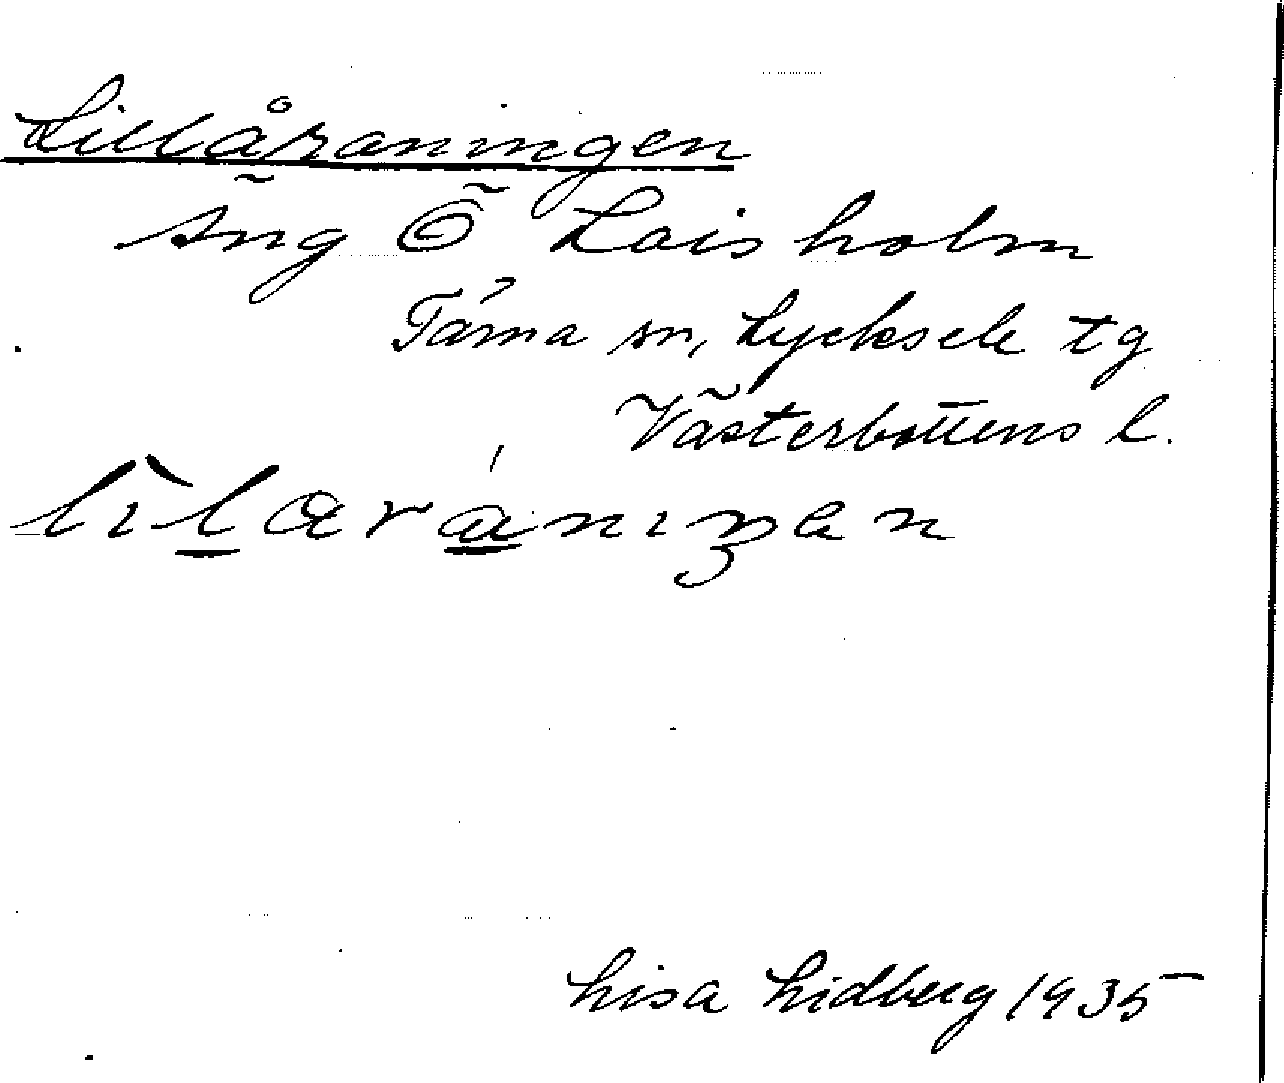 Lillåraningen
Äng Ö Laisholm
Tärna sn, Lycksele tg
Västerbottens l.
Lisa Lidberg 1935